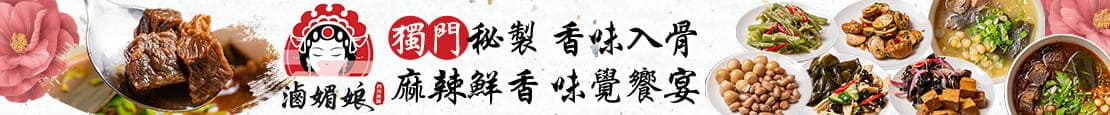 滷媚娘
獨門秘製 香味入骨
麻辣鮮香 味覺饗宴